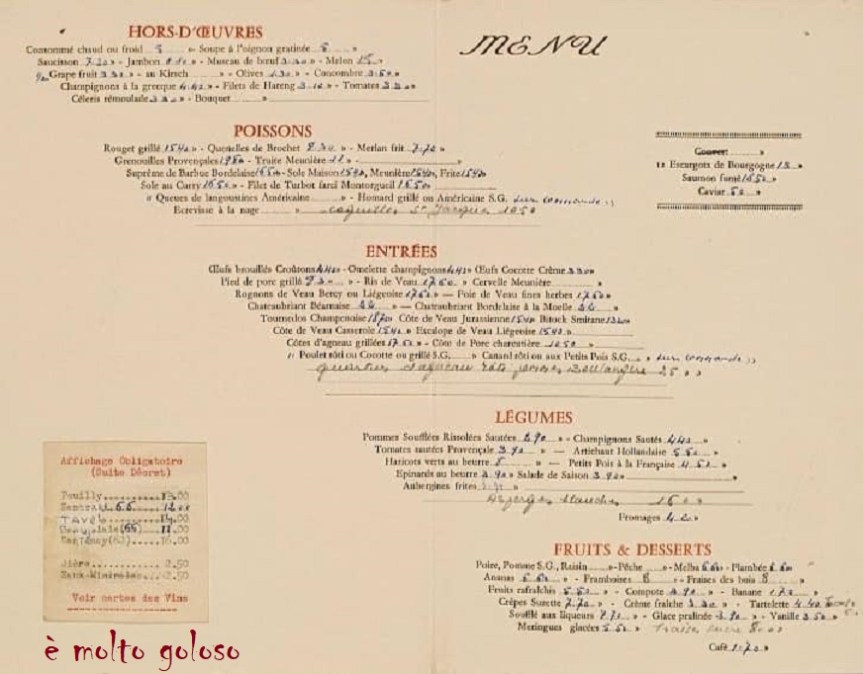 MENU
HORS-D'ŒUVRES
Consommé chaud ou froid 5 » - Soupe à l'oignon gratinée 8 »
Saucisson 7.20 » - Jambon » - Museau de bœuf 3.30 » - Melon 15 »
Grape fruit 3.30 » - au Kirsch » - Olives 1.30 » - Concombre 3.50 »
Champignons à la grecque 4.40 » - Filets de Hareng 3.10 » - Tomates 3.30 »
Céleris rémoulade 3.30 » - Bouquet »
POISSONS
Rouget grillé 15 40 » - Quenelles de Brochet 8.30 » - Merlan frit 7.70 »
Grenouilles Provençales » - Truite Meunière 11 » - »
Suprême de Barbue Bordelaise 16 50 » - Sole Maison 15 40, Meunière 15 40, Frite 15 40
Sole au Curry 16 50 » - Filet de Turbot farci Montorgueil 16 50
« Queues de langoustines Américaine » - Homard grillé ou Américaine S.G. sur commande »
Ecrevisse à la nage » coquilles St Jacques 16 50
Couvert »
12 Escargots de Bourgogne 15 »
Saumon fumé 16 50 »
Caviar 50 »
ENTRÉES
Œufs brouillés Croûtons 4.40 » - Omelette champignons 4.40 » Œufs Cocotte Crème 3.30 »
Pied de porc grillé » - Ris de Veau 17.60 » Cervelle Meunière
Rognons de Veau Bercy ou Liégeoise 17.60 » — Foie de Veau fines herbes 17.60 »
Chateaubriant Béarnaise » — Chateaubriant Bordelaise à la Moelle »
Tournedos Champenoise 18 70 » Côte de Veau Jurassienne 15 40 » Bitock Smitane
Côte de Veau Casserole 15 40 » Escalope de Veau Liégeoise 15 40 »
Côtes d'agneau grillées 17.50 » - Côte de Porc charcutière 10.50 »
« Poulet rôti ou Cocotte ou grillé S.G. » Canard rôti ou aux Petits Pois S.G. » sur commande »
agneau rôti pommes Boulangère 25 »
LÉGUMES
Pommes Soufflées Rissolées Sautées 3.90 » - Champignons Sautés 4.40 »
Tomates sautées Provençale 3.90 » — Artichaut Hollandaise 5.50 »
Haricots verts au beurre 5 » — Petits Pois à la Française 4.50 »
Epinards au beurre 3.90 » Salade de Saison 3.90 »
Aubergines frites »
Asperges blanches 15 »
Fromages 4.20 »
Affichage Obligatoire
(Suite Décret)
Pouilly 13.00
66 12.00
TAVEL 14.00
(66) 11.00
(62) 16.00
Bière 2.50
Eaux-Minérales 2.50
Voir cartes des Vins
FRUITS & DESSERTS
Poire, Pomme S.G., Raisin » - Pêche » - Melba 6.60 » - Flambée 6.60
Ananas 5.50 » - Framboises 8 » - Fraises des bois 8 »
Fruits rafraîchis 5.50 » - Compote 3.90 » - Banane 1.70 »
Crêpes Suzette 7.70 » - Crème fraîche 3.30 » - Tartelette 4.40
Soufflé aux liqueurs 7.70 » - Glace pralinée 3.90 » - Vanille 3.50 »
Meringues glacées 5.50 » fraises sucre 8 »
Café 1.70 »
è molto goloso